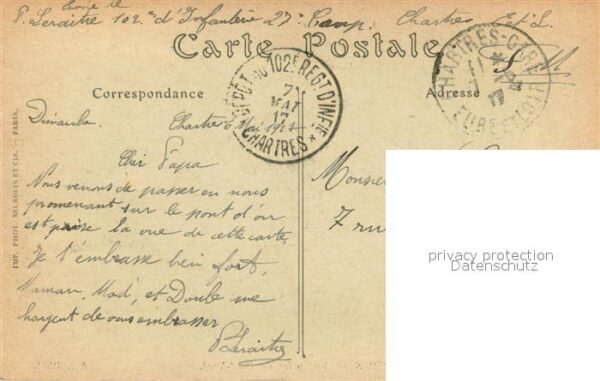 P. Leraitre 102e d'Infanterie 27e Comp. Chartres E et L.
Carte Postale
Correspondance
Adresse
DÉPÔT DU 102E REGT D'INFIE
7
MAI
17
* CHARTRES *
CHARTRES-GARE
17
EURE-ET-LOIR
Dimanche
Chartres 6 Mai 1917
Cher Papa
Nous venons de passer en nous
promenant sur le pont d'où
est prise la vue de cette carte,
Je t'embrasse bien fort,
Maman, Mad, et me
chargent de vous embrasser
PLeraitre
Monsieur
7 ru
IMP. PHOT. NEURDEIN ET CIE. — PARIS.
privacy protection
Datenschutz